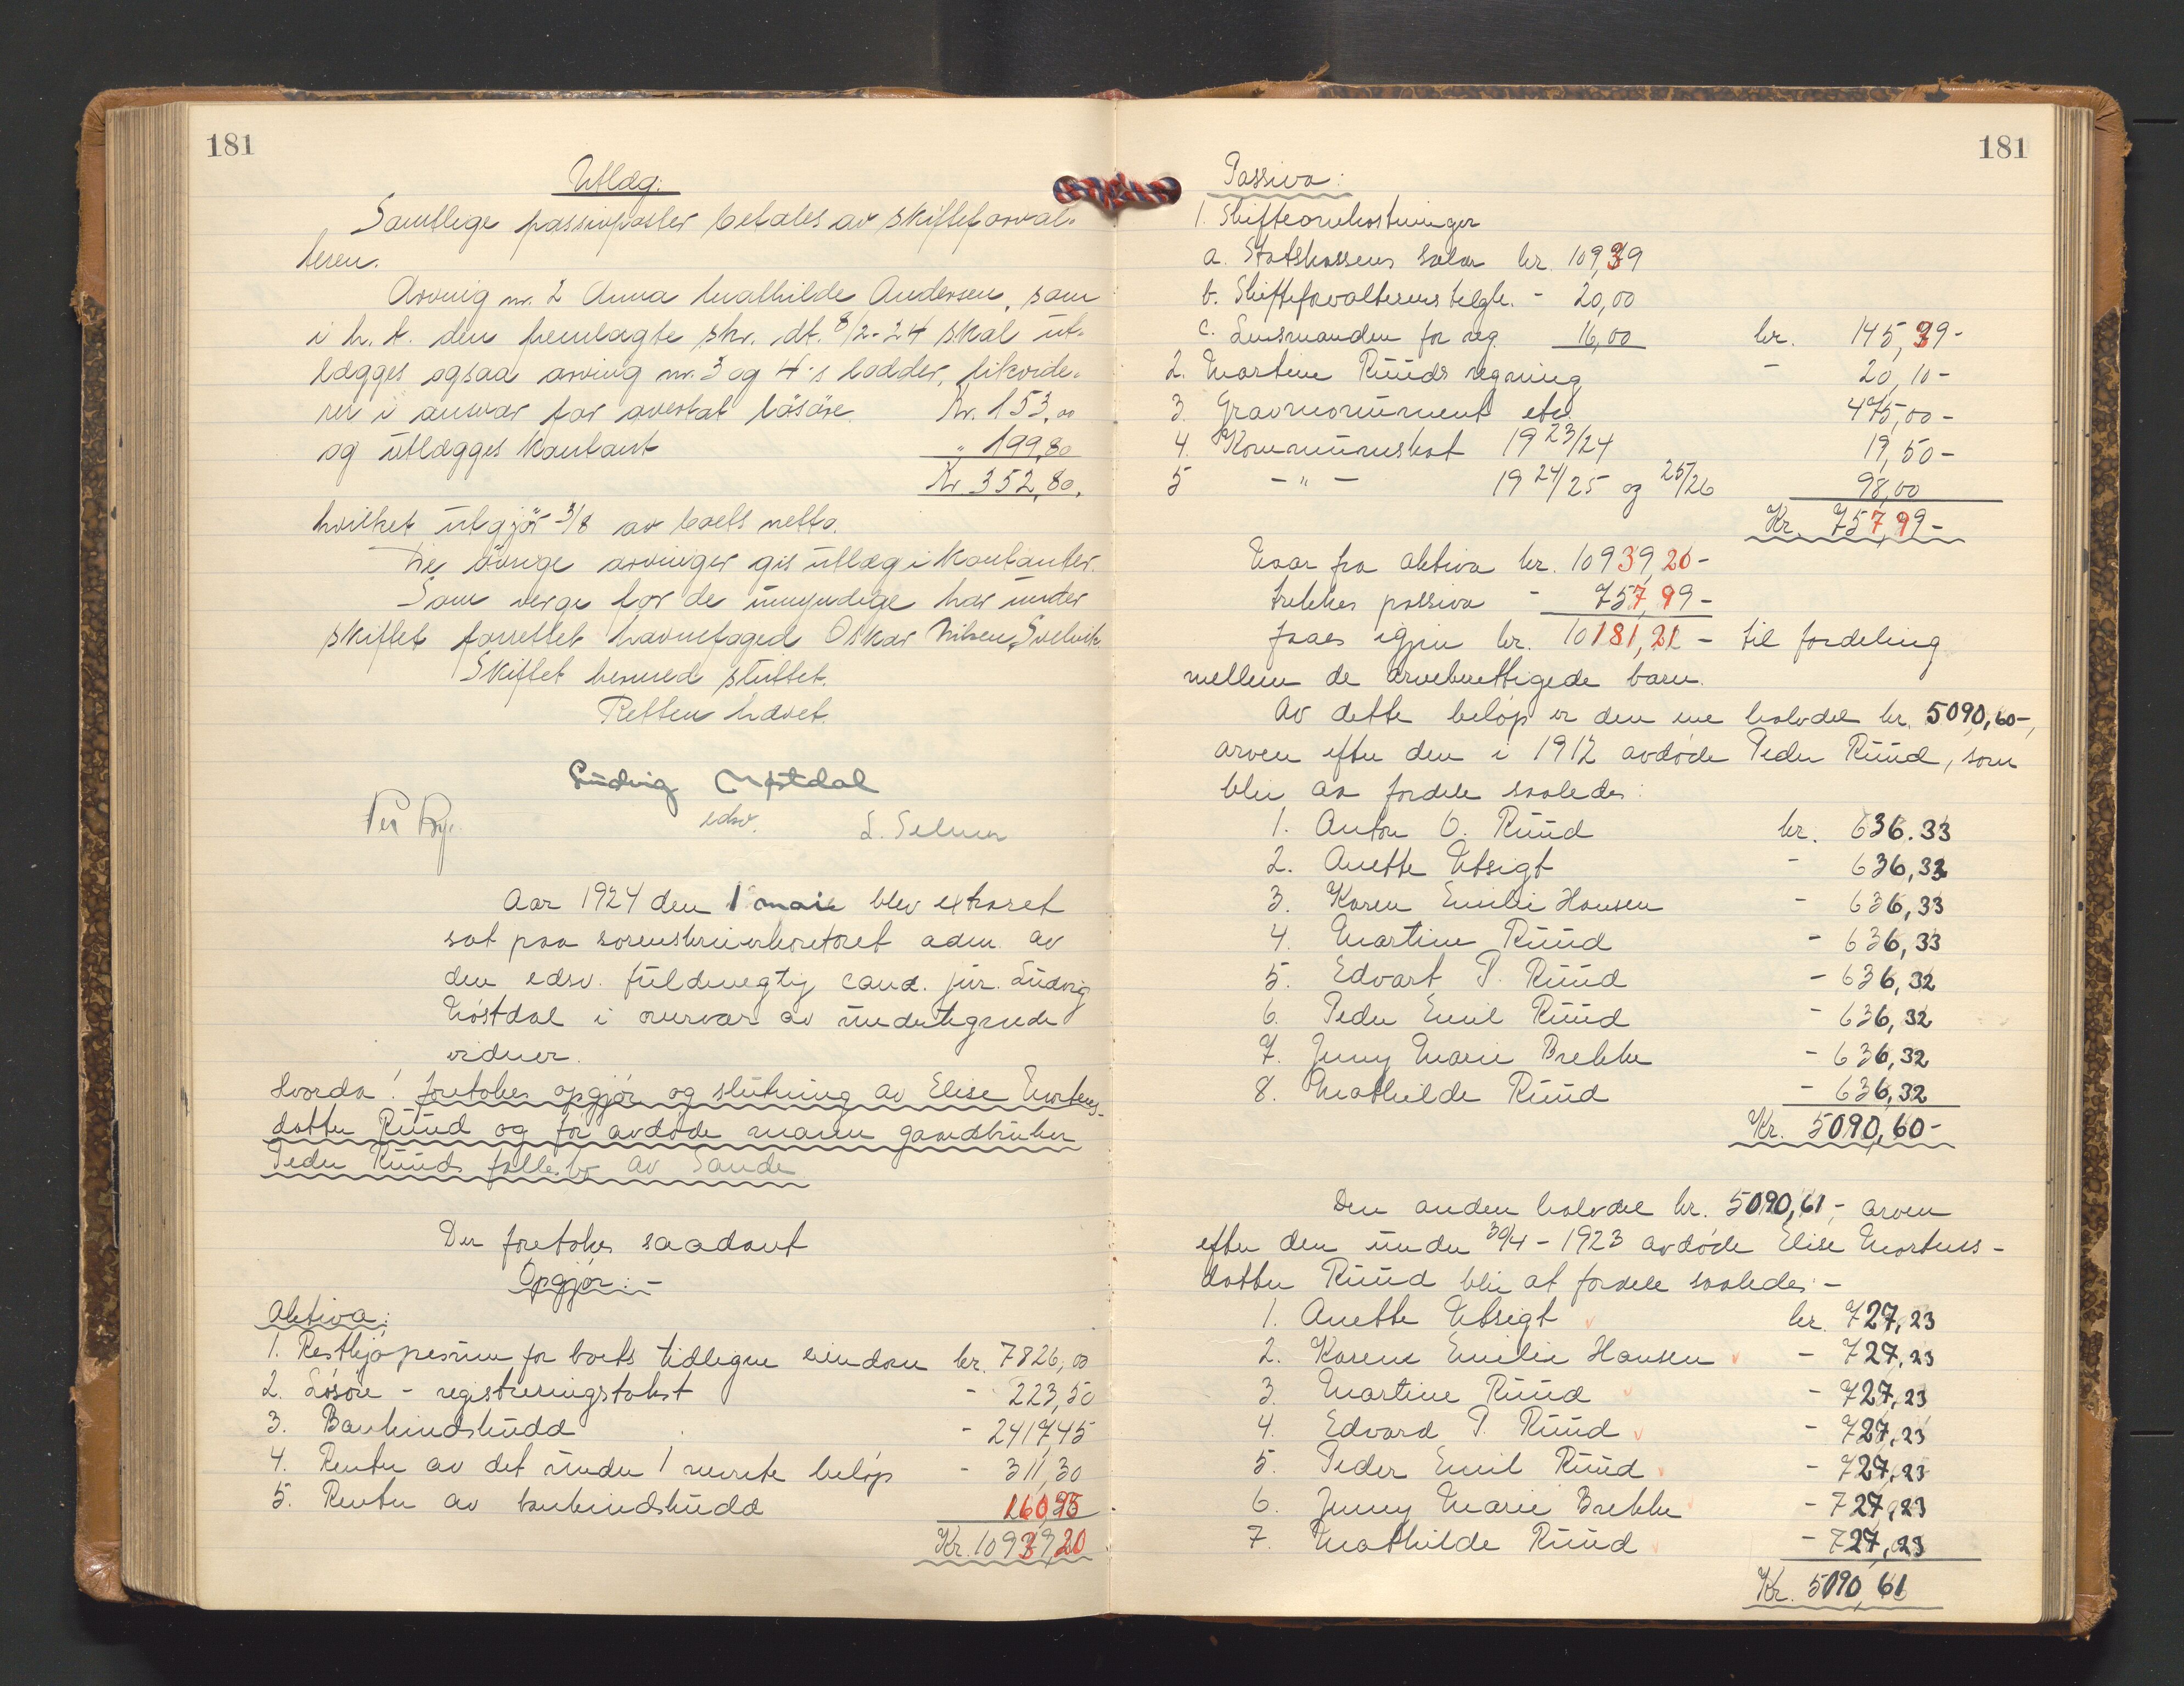 181
Utlæg:
Samtlige passivposter betales av skifteforval-
teren.
Arving nr. 2 Anna Mathilde Andersen, som
i h. t. den fremlagte skr. dt. 8/2-24 skal ut-
lægges ogsaa arving nr. 3 og 4's lodder, likvide-
rer i ansvar for overtat løsøre Kr. 153,00
og utlægges kontant " 199,80
Kr. 352,80.
hvilket utgjør 3/8 av boets netto.
De øvrige arvinger gis utlæg i kontanter.
Som verge for de umyndige har under
skiftet forrettet havnefoged Oskar Nilsen, Svelvik
Skiftet hermed sluttet.
Retten hævet.
Ludvig Mostdal
edsv.
Per Bye. L. Selmer
Aar 1924 den 1 mai blev extraret
sat paa sorenskriverkontoret adm. av
den edsv. fuldmegtig cand. jur. Ludvig
Mostdal i overvær av undertegnede
vidner.
Hvorda! foretokes opgjør og slutning av Elise Mortens-
datter Ruud og før avdøde mann gaardbruker
Peder Ruuds fællesbo av Sande
Der foretokes saadant
Opgjør: -
Aktiva:
1. Restkjøpesum for boets tidligere eiendom kr. 7826,00
2. Løsøre - registreringstakst - 223,50
3. Bankindskudd - 2417,45
4. Renter av det under 1 nevnte beløp - 311,30
5. Renter av bankindskudd 160,95
Kr. 10939,20
181
Passiva:
1. Skifteomkostninger
a. Statskassens salær kr. 109,39
b. Skifteforvalterens telgb. - 20,00
c. Lensmanden for reg. 16,00 kr. 145,39-
2. Martine Ruuds regning - 20,10-
3. Gravmonument etc. 475,00-
4. Kommuneskat 1923/24 19,50-
5 - " - 1924/25 og 25/26 98,00
Kr. 757,99-
Naar fra aktiva kr. 10939,20-
trekkes passiva - 757,99-
faaes igjen kr. 10181,21- til fordeling
mellem de arveberettigede barn.
Av dette beløp er den ene halvdel kr. 5090,60-,
arven efter den i 1912 avdøde Peder Ruud, som
blir aa fordele saaledes:
1. Anton O. Ruud kr. 636.33
2. Anette Utsigt - 636,32
3. Karen Emilie Hansen - 636,33
4. Martine Ruud - 636,33
5. Edvart P. Ruud - 636,32
6. Peder Emil Ruud - 636,32
7. Jenny Marie Brekke - 636,32
8. Mathilde Ruud - 636,32
Kr. 5090,60-
Den anden halvdel kr. 5090,61,- arven
efter den under 30/4-1923 avdøde Elise Mortens-
datter Ruud blir at fordele saaledes: -
1. Anette Utsigt kr. 727,23
2. Karen Emilie Hansen - 727,23
3. Martine Ruud - 727,23
4. Edvard P. Ruud - 727,23
5. Peder Emil Ruud - 727,23
6. Jenny Marie Brekke - 727,23
7. Mathilde Ruud - 727,23
Kr. 5090,61